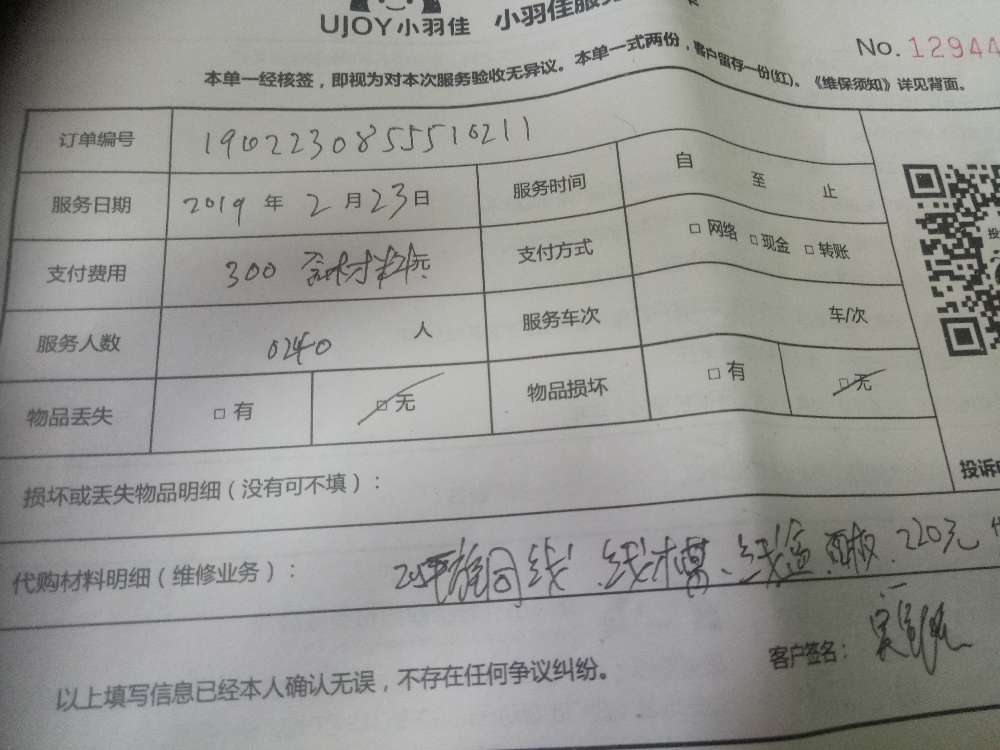 UJOY小羽佳 小羽佳服务
No. 12944
本单一经核签，即视为对本次服务验收无异议。本单一式两份，客户留存一份(红)、《维保须知》详见背面。
订单编号 19022308555510211
服务日期 2019 年 2 月 23 日 服务时间 自 至 止
支付费用 300 含材料元 支付方式 □ 网络 □ 现金 □ 转账
服务人数 0240 人 服务车次 车/次
物品丢失 □ 有 □ 无 物品损坏 □ 有 □ 无
损坏或丢失物品明细（没有可不填）：
投诉
代购材料明细（维修业务）： 线、线盒、面板、220元
客户签名：
以上填写信息已经本人确认无误，不存在任何争议纠纷。